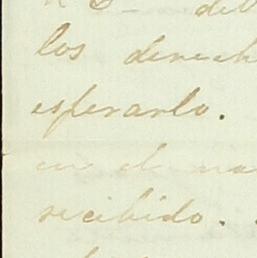 los derech
esperarlo.
en el ma
recibido.